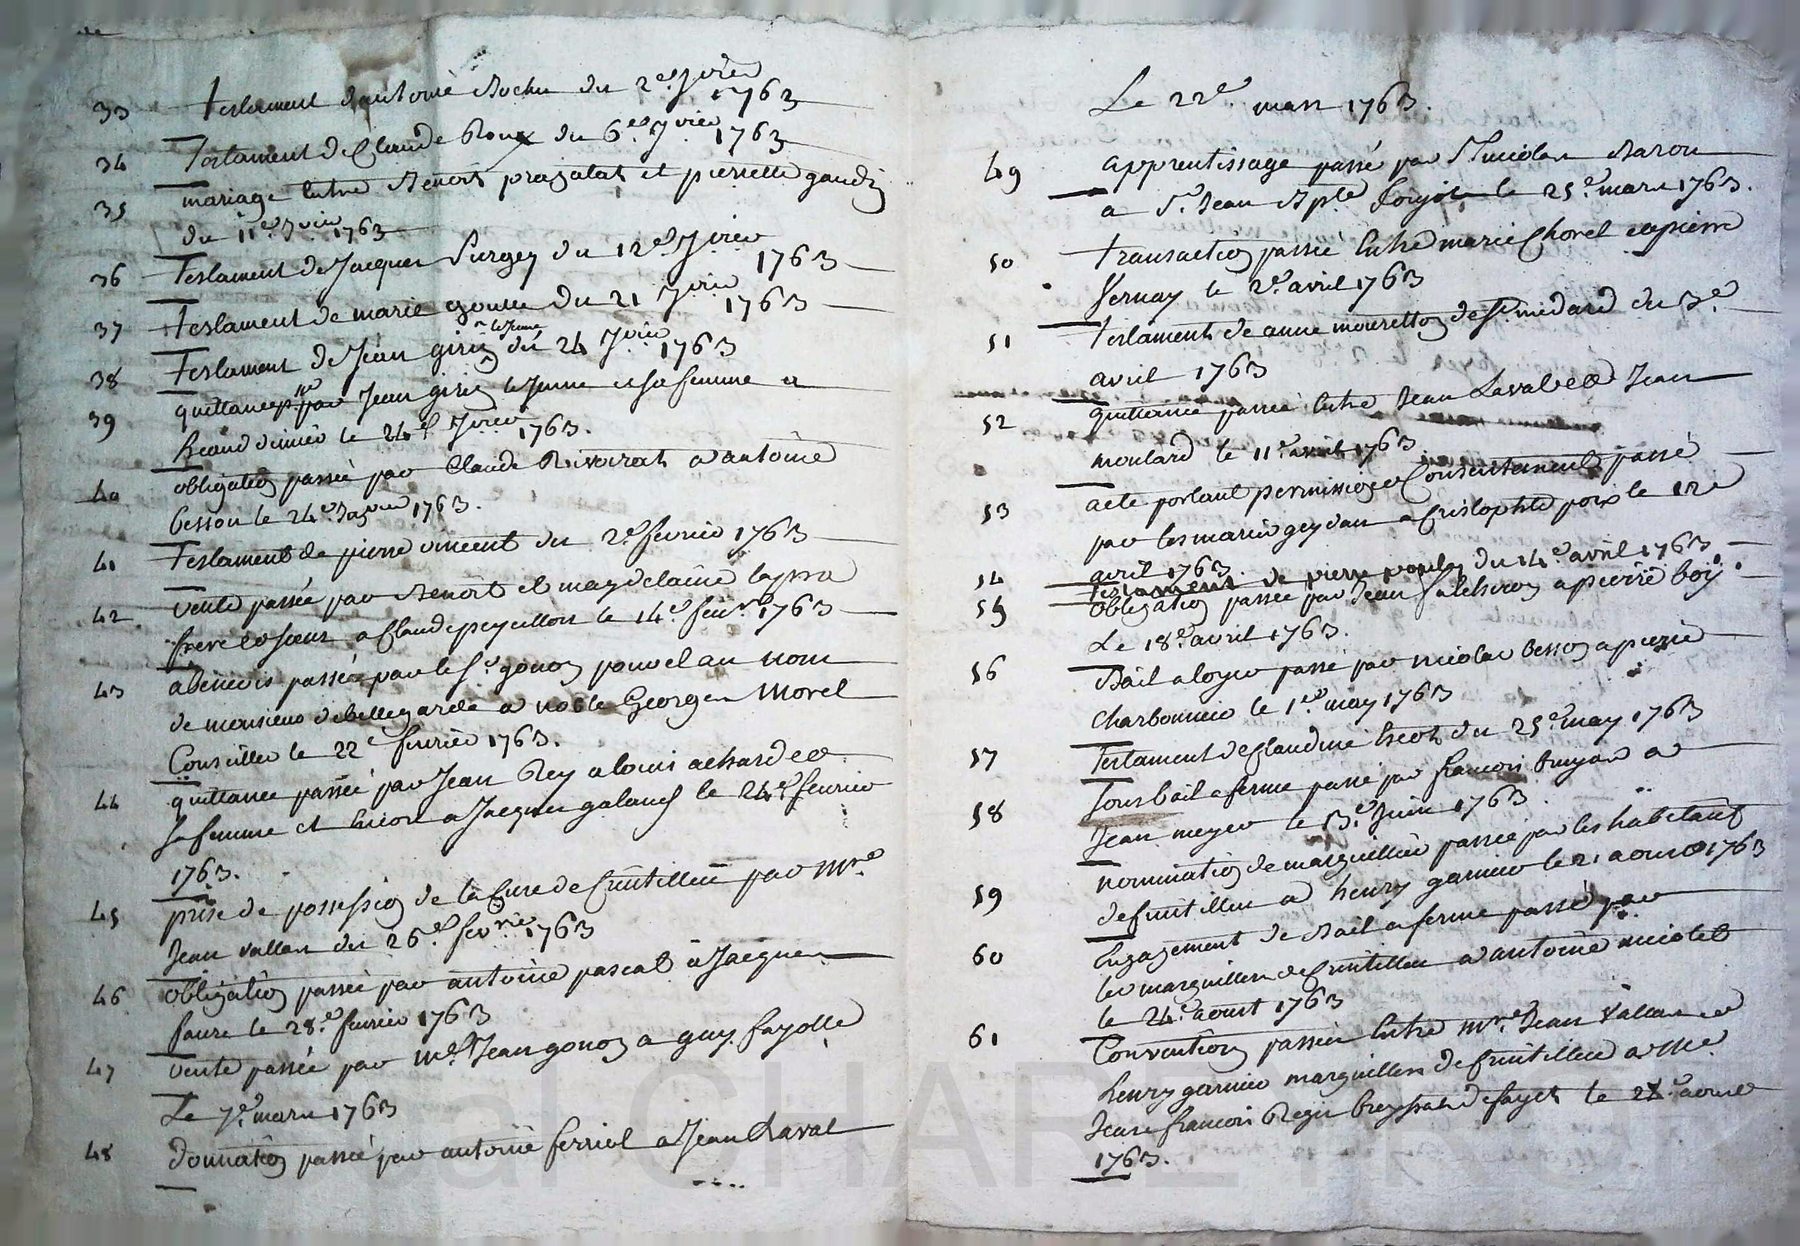 33 testament d'antoine Rochu du 2e. Jvier 1763
34 Testament de Claude Roux du 6e. Jvier 1763
35 mariage entre Benoit pragalat et pierrette gaudin
du 11e. Jvier 1763
36 Testament de Jacques Purgey du 12e. Jvier 1763
37 Testament de marie goutte du 21 Jvier 1763
38 Testament de Jean girin le Jeune du 24 Jvier 1763
39 quittance par Jean girin le Jeune et sa femme a
le 24e. Jvier 1763.
40 obligation passée par Claude Rivoirat a antoine
besson le 24e. Janvier 1763.
41 Testament de pierre vincent du 2e. fevrier 1763
42 vente passée par Benoit et magdelaine
frere et soeur a Claude peycellon le 14e. fevr. 1763
43 abenevis passée par le Sr. gonon pour et au nom
de monsieur debellegarde a noble George Morel
Conseiller le 22e fevrier 1763.
44 quittance passée par Jean Rey a louis achard et
sa femme et a Jacques galand le 24e. fevrier
1763.
45 prise de possession de la Cure de Cuntillieu par mre.
Jean vallas du 26e. fevrier 1763
46 obligation passée par antoine pascal a Jacques
faure le 28e. fevrier 1763
47 vente passée par me. Jean gonon a guy fayolle
Le 7e. mars 1763
48 Donnation passée par antoine ferriol a Jean Laval
Le 22e. mars 1763.
49 apprentissage passé par Sr. nicolas Baron
a Sr. Jean Bpte le 25e. mars 1763.
50 transaction passée entre marie Chorel et pierre
Vernay le 2e. avril 1763
51 testament de anne mouretton de St. medard du 3e.
avril 1763
52 quittance passée entre Jean Laval et Jean
moulard le 11e. avril 1763
53 acte portant permission et Consentement passé
par les mariés geydan a Cristophle poix le 12e
avril 1763.
54 testament de pierre du 14e. avril 1763
55 obligation passée par Jean a pierre boy
Le 18e. avril 1763.
56 Bail a loyer passé par nicolas besson a pierre
Charbonnier le 1er. may 1763
57 Testament de Claudine du 25e. may 1763
58 sousbail a ferme passé par françois bruyas a
Jean meyer le 13e. Juin 1763.
59 nomination de marguillier passée par les habitants
de Cuntillieu a henry garnier le 21 aoust 1763
60 Engagement de Bail a ferme passé par
les marguilliers de Cuntillieu a antoine nicolet
le 24e. aoust 1763
61 Convention passée entre mre. Jean Vallas et
henry garnier marguilliers de Cuntillieu a Me.
Jean françois Regis de fayet le aoust
1763.